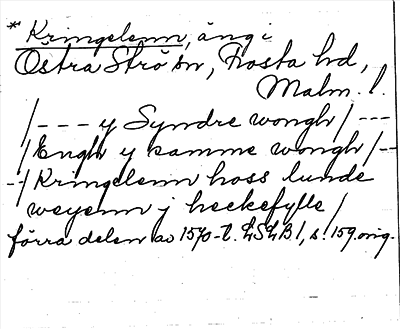 * Kringelenn, äng i
Östra Strö sn, Frosta hd,
Malm. l.
/--- y Syndre wongh/---
/Engh y samme wongh/--
--/Kringelenn hoss lunde
weyenn j heckefylle/
förra delen av 1570-t. LSLB 1, s. 159 orig.